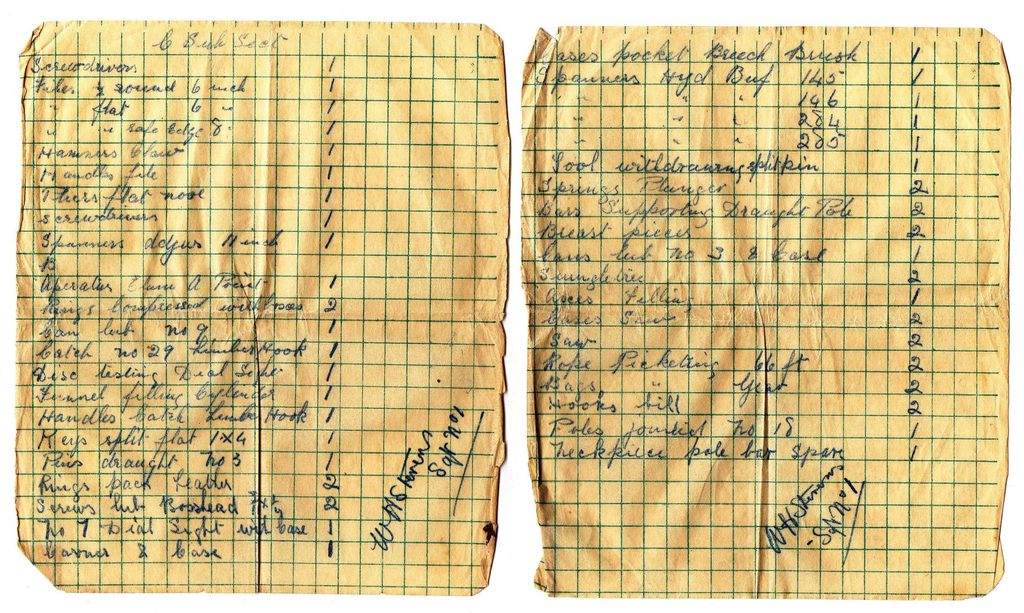 C Sub Sect
Screwdrivers 1
Files ½ round 6 inch 1
" flat 6 " 1
" " safe Edge 8" 1
Hammers Claw 1
Handles file 1
Pliers flat nose 1
Screwdrivers 1
Spanners adjus 11 inch 1
B
Aparatus A Point 1
Rings Compressed with boxes 2
Can lub No 9 1
Catch No 29 Limber Hook 1
Disc testing Dial Sight 1
Funnel filling Cylinder 1
Handles Catch Limber Hook 1
Keys split flat 1X4 1
Pins draught No 3 1
Rings pack Leather 2
Screws lub Bosshead 2
No 7 Dial Sight with Case 1
Carrier & Case 1
W H Stevens
Sgt No 1
Cases pocket Breech Brush 1
Spanners Hyd Buf 145 1
" " " 146 1
" " " 204 1
" " " 205 1
Tool withdrawing split pin 1
Springs Plunger 2
Bars Supporting Draught Pole 2
Breast pieces 2
Cans lub No 3 & Case 1
Swingletree 2
Axes Felling 1
Cases Saw 2
Saw 2
Rope Picketing 66 ft 2
Bags " Gear 2
Hooks bill 2
Poles joined No 18 1
Neckpiece pole bar Spare 1
W H Stevens
Sgt No 1